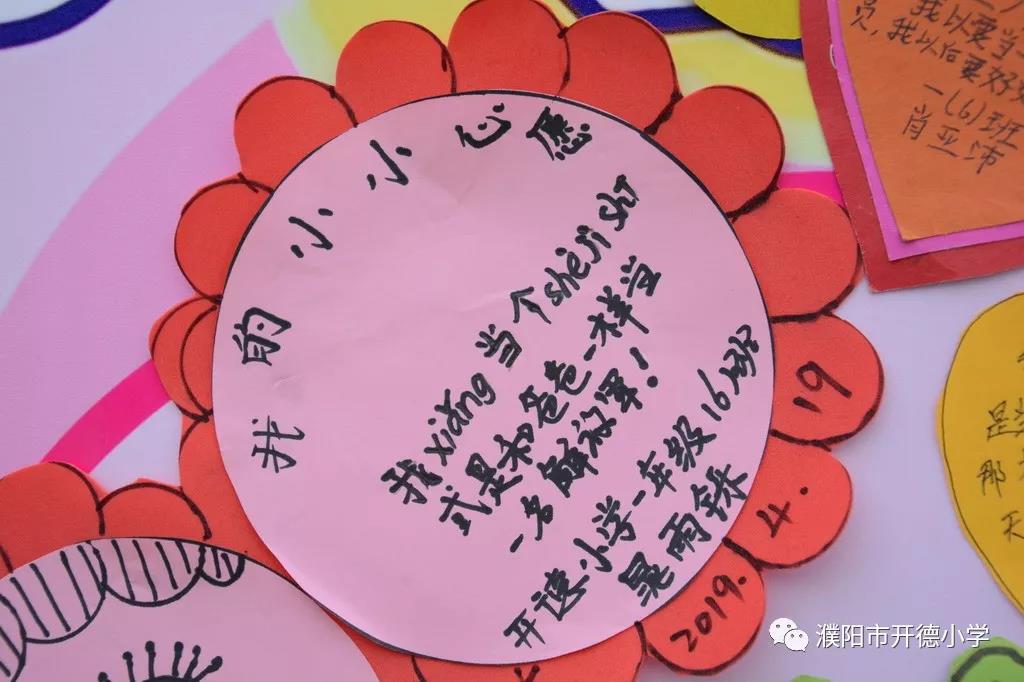 我的小小心愿
我xiǎng当个shejì shī
式是和爸爸一样当
一名解放军！
开速小学一年级16班
晁雨铄
2019.
4.
19
我以要当
员,我以后要好
一(6)班
肖亚沛
是
那
天
濮阳市开德小学